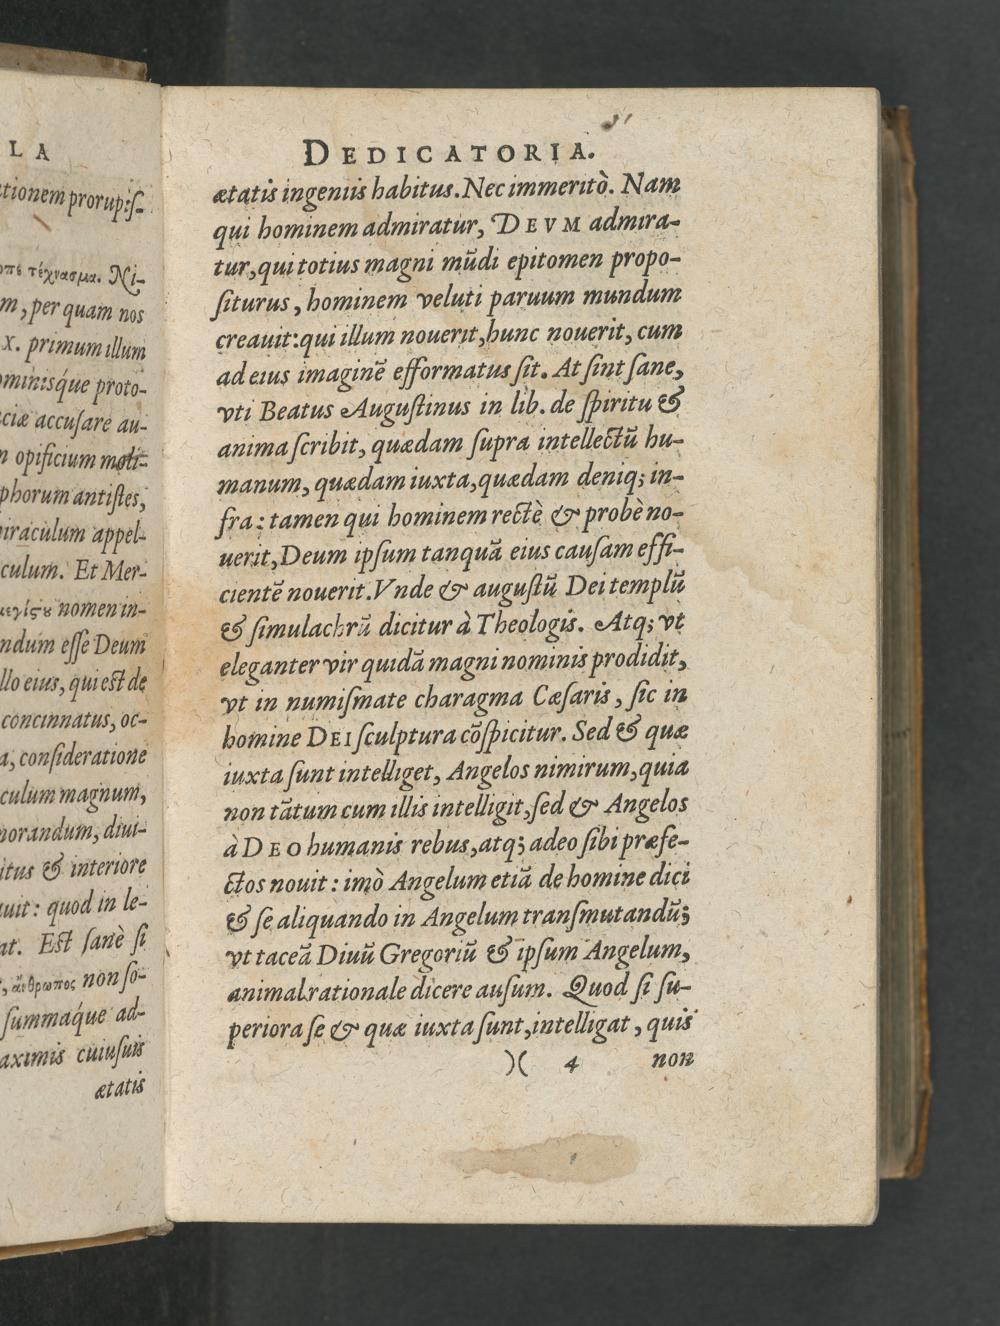 LA
tionem prorupiſ-
τέχνασμα. Ni-
m, per quam nos
X. primum illum
ominisq́ue proto-
ciæ accuſare au-
n opificium moli-
phorum antiſtes,
miraculum appel-
culum. Et Mer-
nomen in-
ndum eſſe Deum
llo eius, qui eſt de
concinnatus, oc-
a, conſideratione
culum magnum,
morandum, diui-
itus & interiore
uit: quod in le-
at. Eſt ſanè ſi
, ἄνθρωπος non ſo-
ſummaq́ue ad-
aximis cuiuſuis
ætatis
DEDICATORIA.
ætatis ingeniis habitus. Nec immeritò. Nam
qui hominem admiratur, DEVM admira-
tur, qui totius magni mũdi epitomen propo-
ſiturus, hominem veluti paruum mundum
creauit: qui illum nouerit, hunc nouerit, cum
ad eius imaginẽ efformatus ſit. At ſint ſane,
vti Beatus Auguſtinus in lib. de ſpiritu &
anima ſcribit, quædam ſupra intellectũ hu-
manum, quædam iuxta, quædam deniq; in-
fra: tamen qui hominem rectè & probè no-
uerit, Deum ipſum tanquã eius cauſam effi-
cientẽ nouerit. Vnde & auguſtũ Dei templũ
& ſimulachrũ dicitur à Theologis. Atq; vt
eleganter vir quidã magni nominis prodidit,
vt in numiſmate charagma Cæſaris, ſic in
homine DEI ſculptura cõſpicitur. Sed & quæ
iuxta ſunt intelliget, Angelos nimirum, quia
non tãtum cum illis intelligit, ſed & Angelos
à DEO humanis rebus, atq; adeo ſibi præfe-
ctos nouit: imò Angelum etiã de homine dici
& ſe aliquando in Angelum tranſmutandũ;
vt taceã Diuũ Gregoriũ & ipſum Angelum,
animal rationale dicere auſum. Quod ſi ſu-
periora ſe & quæ iuxta ſunt, intelligat, quis
)( 4 non